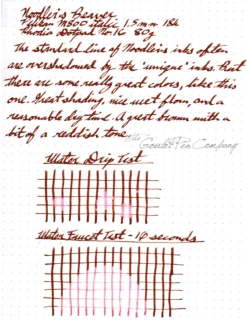 Noodler's Beaver
Pelikan M800 italic 1.5mm 18k
Rhodia Dotpad No.16 80g
The standard line of Noodler's inks often
are overshadowed by the 'unique' inks. But
there are some really great colors, like this
one. Great shading, nice wet flow, and a
reasonable dry time. A great brown with a
bit of a reddish tone.
The Goulet Pen Company
Water Drip Test
Water Faucet Test - 10 seconds